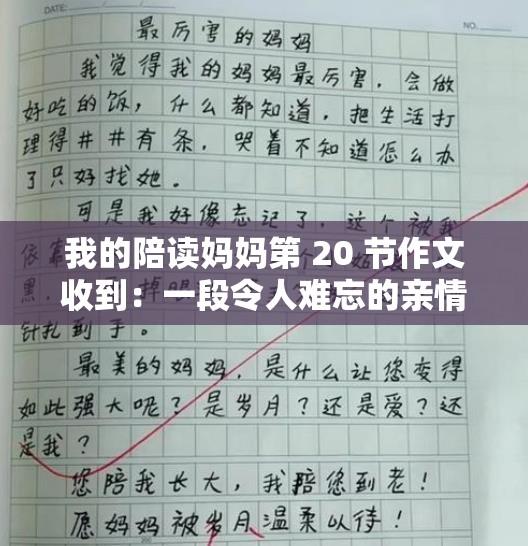 DATE:
NO.
最厉害的妈妈
我觉得我的妈妈最厉害，会做
好吃的饭，什么都知道，把生活打
理得井井有条，哭着不知道怎么办
了只好找她。
可是我好像忘记了，这个被我
依靠
我的陪读妈妈第 20 节作文
收到：一段令人难忘的亲情
黑，
针扎到手。
最美的妈妈，是什么让您变得
如此强大呢？是岁月？还是爱？还
是我？
您陪我长大，我陪您到老！
愿妈妈被岁月温柔以待！
200